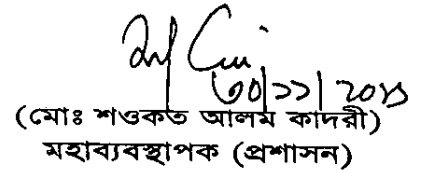 ৩০/১১/২০১১
(মোঃ শওকত আলম কাদরী)
মহাব্যবস্থাপক (প্রশাসন)